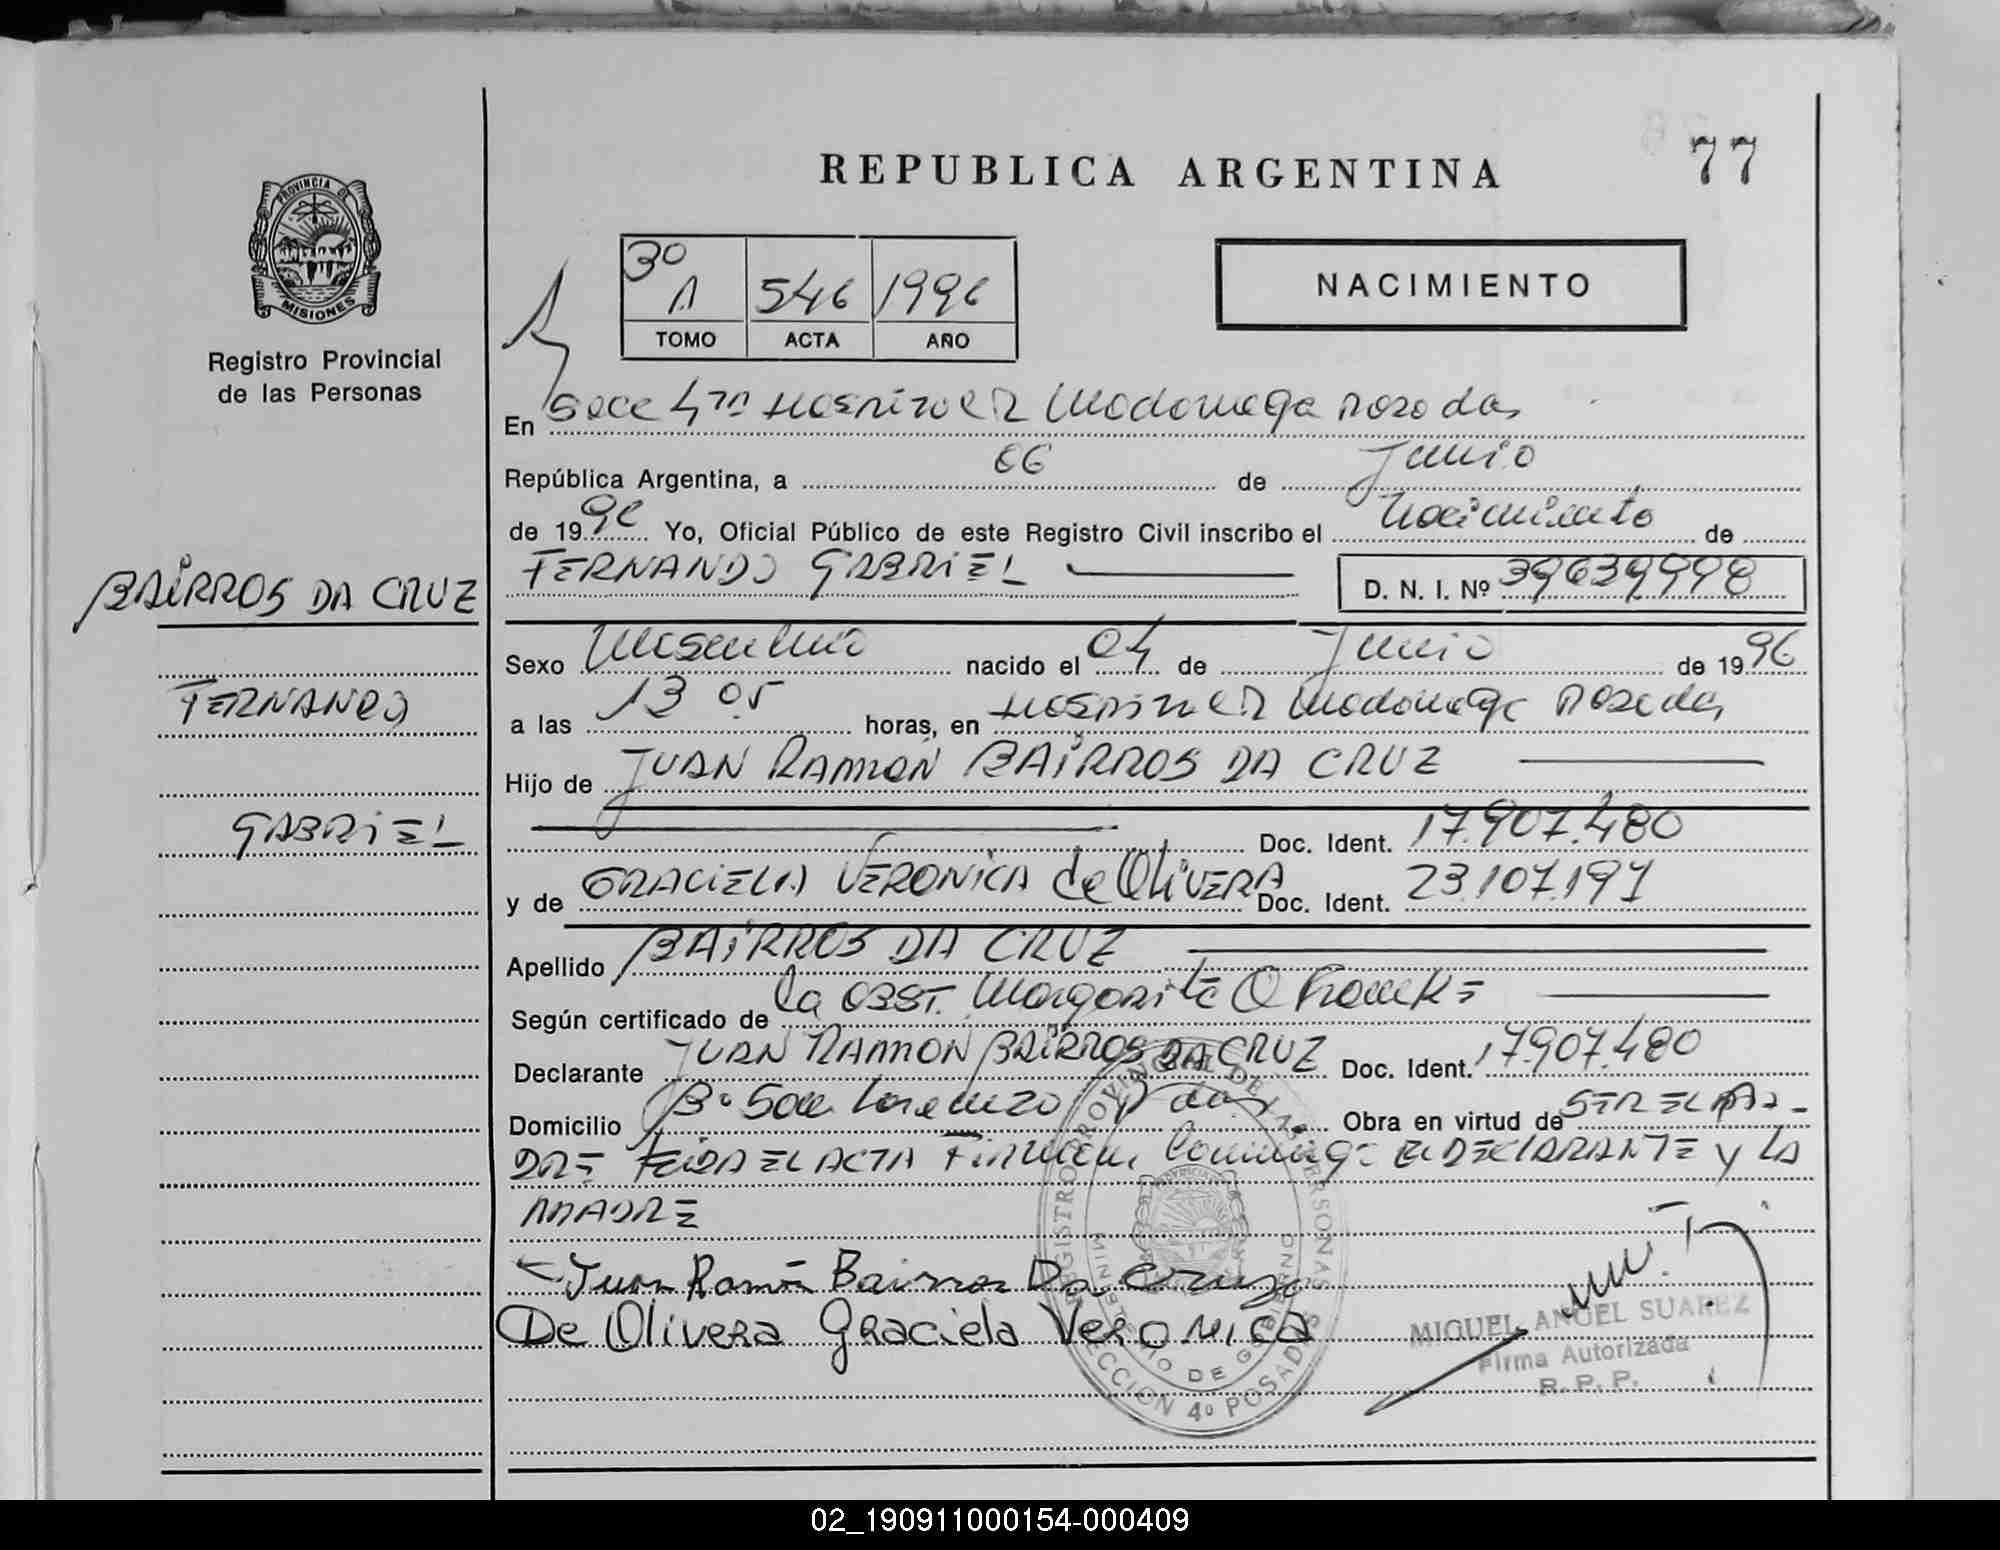 REPUBLICA ARGENTINA
77
PROVINCIA DE
MISIONES
Registro Provincial
de las Personas
3º A 546 1996
TOMO ACTA AÑO
NACIMIENTO
En Secc 4ta Hospital Dr Madariaga Posadas
República Argentina, a 06 de Junio
de 1996 Yo, Oficial Público de este Registro Civil inscribo el Nacimiento de
FERNANDO GABRIEL D. N. I. Nº 39639998
BAIRROS DA CRUZ
FERNANDO
GABRIEL
Sexo Masculino nacido el 04 de Junio de 1996
a las 13 05 horas, en Hospital Dr Madariaga Posadas
Hijo de JUAN RAMON BAIRROS DA CRUZ
Doc. Ident. 17.907.480
y de GRACIELA VERONICA de OLIVERA Doc. Ident. 23.107.197
Apellido BAIRROS DA CRUZ
Según certificado de la OBST. Margarita
Declarante JUAN RAMON BAIRROS DA CRUZ Doc. Ident. 17.907.480
Domicilio Bº San Lorenzo Pdas Obra en virtud de SER EL PA-
DRE LEIDA EL ACTA Firman Conmigo EL DECLARANTE y LA
MADRE
Juan Ramón Bairros Da Cruz
De Olivera Graciela Veronica
REGISTRO PROVINCIAL DE LAS PERSONAS
MINISTERIO DE GOBIERNO
SECCION 4º POSADAS
MIGUEL ANGEL SUAREZ
Firma Autorizada
R. P. P.
02_190911000154-000409